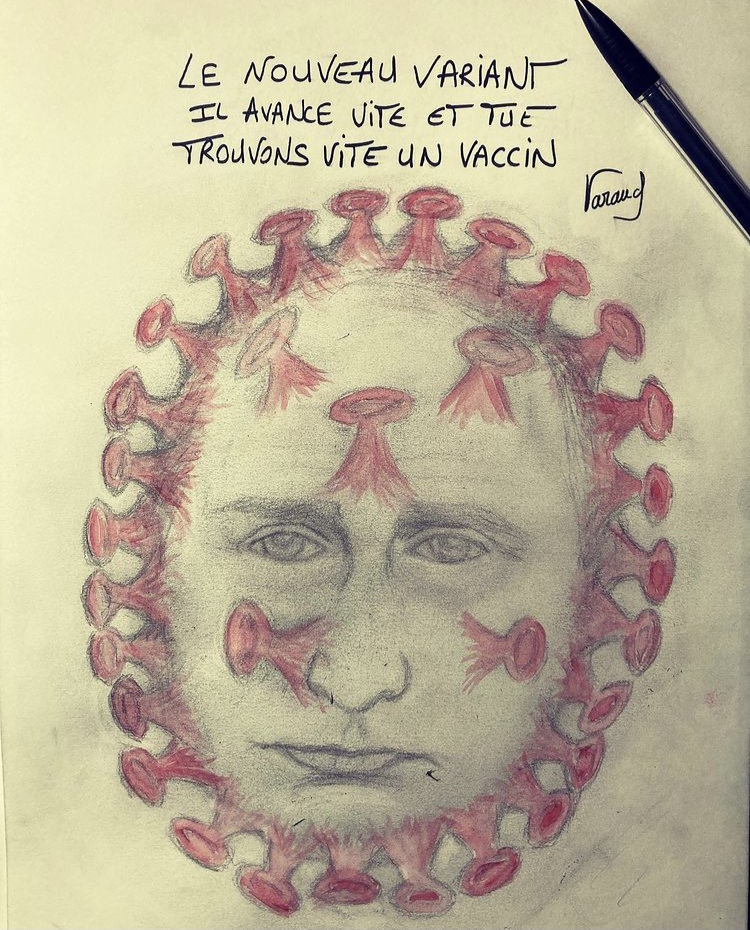 LE NOUVEAU VARIANT
IL AVANCE VITE ET TUE
TROUVONS VITE UN VACCIN
Varaud